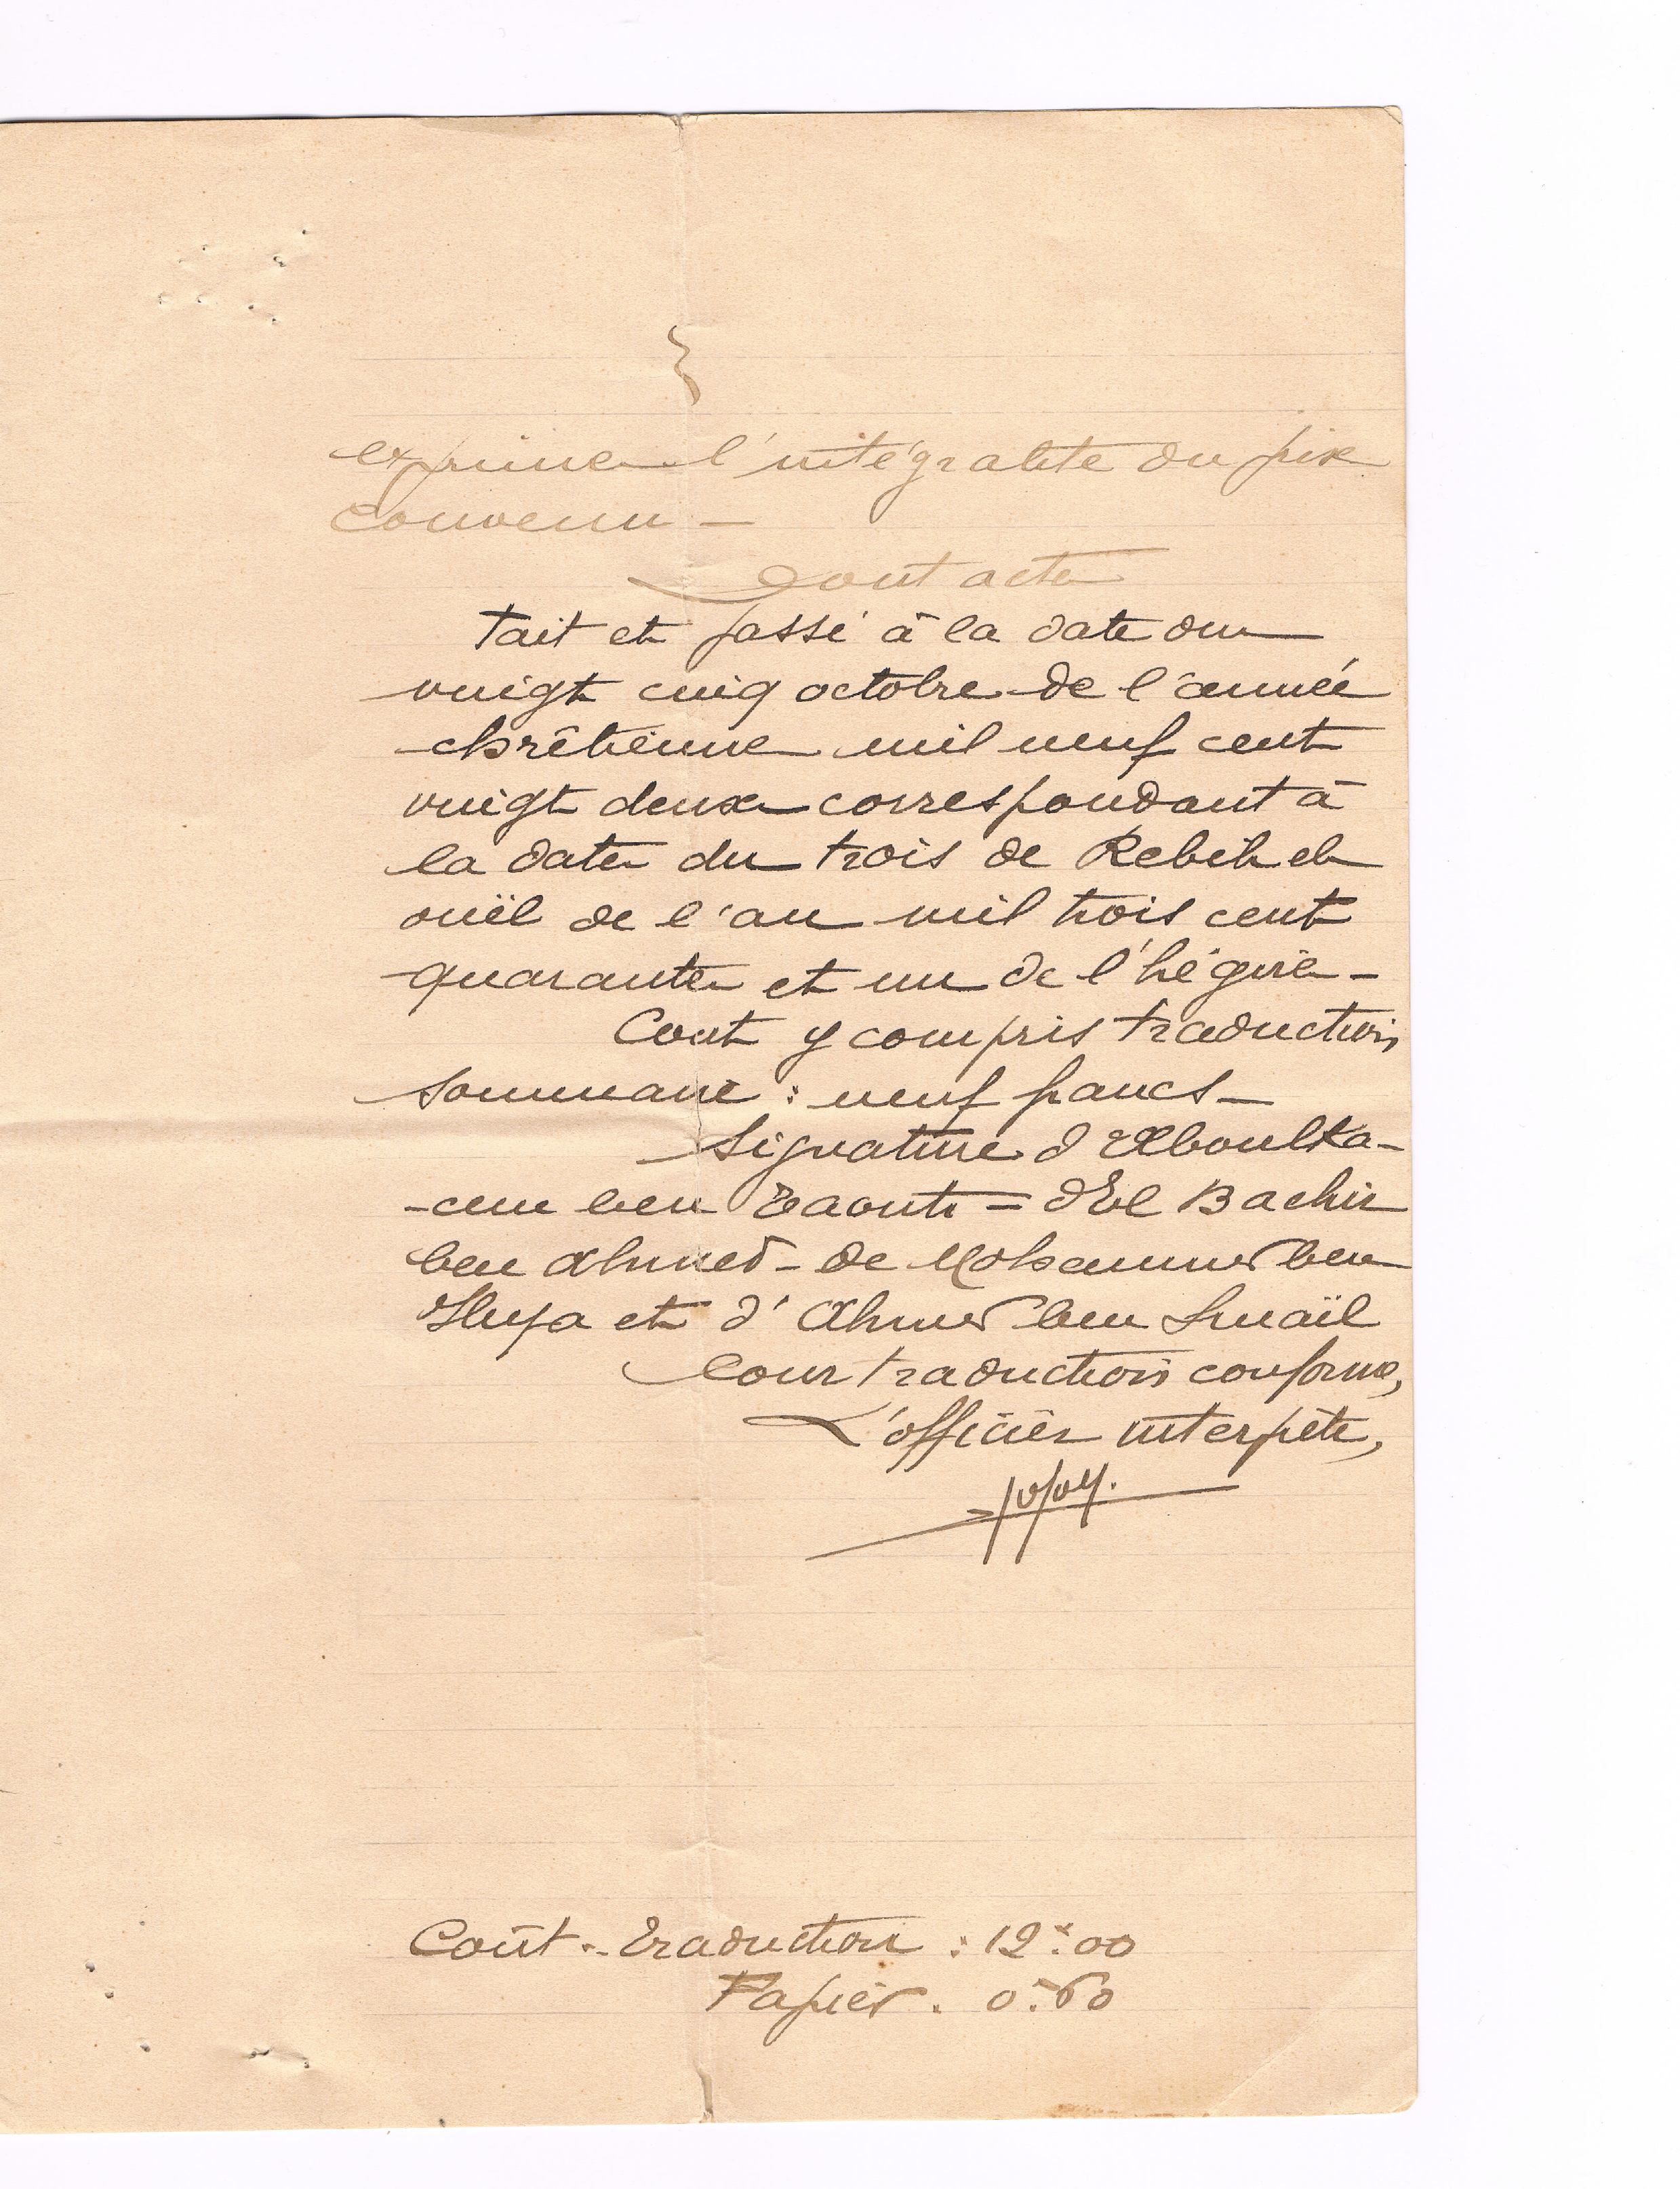 exprimer l'intégralité du prix
convenu —
Dont acte
Fait et passé à la date du
vingt cinq octobre de l'année
chrêtienne mil neuf cent
vingt deux correspondant à
la date du trois de Rebih el
ouël de l'an mil trois cent
quarante et un de l'hégire —
Cout y compris traduction
sommaire : neuf francs —
Signature d'Aboulka-
-cem ben = d'El Bachir
ben Ahmed - de Mohammed ben
et d' Ahmed ben Smaïl
Pour traduction conforme,
L'officier interprète,
Coût .- Traduction : 12f.00
Papier . 0f.60